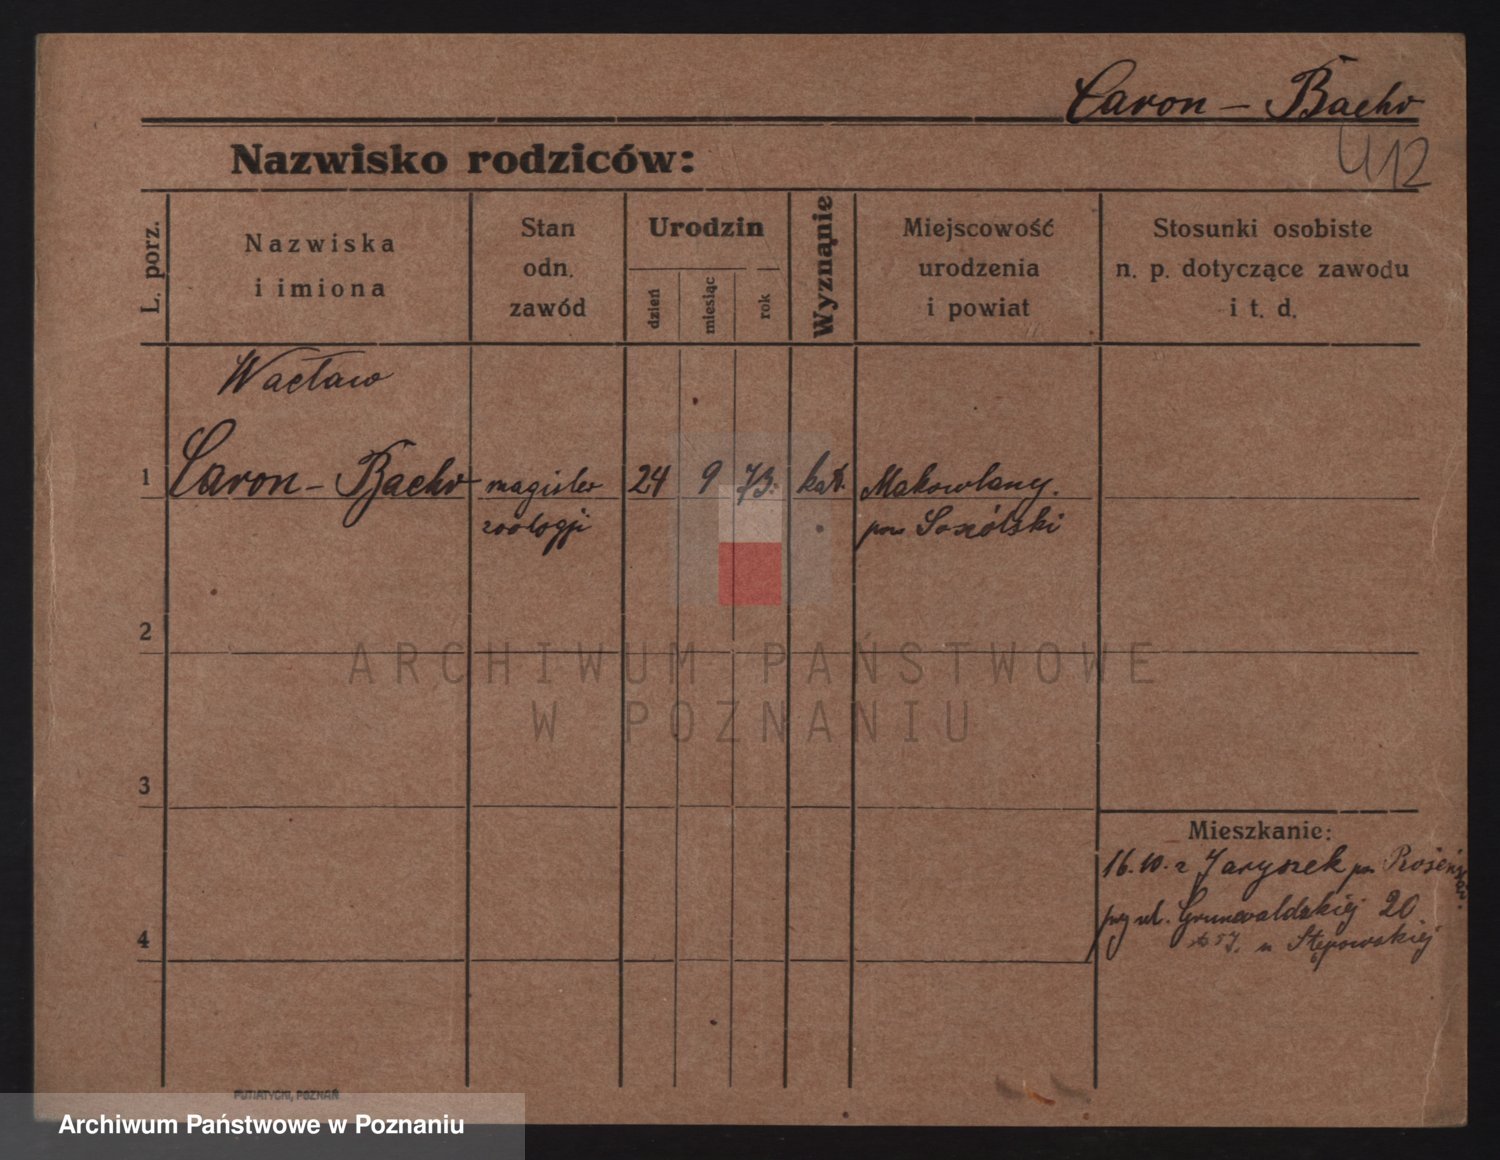 Caron - Baehr
412
Nazwisko rodziców:
L. porz.
Nazwiska
i imiona
Stan
odn.
zawód
Urodzin
dzień
miesiąc
rok
Wyznanie
Miejscowość
urodzenia
i powiat
Stosunki osobiste
n. p. dotyczące zawodu
i t. d.
Wacław
1 Caron - Baehr magister 24 9 73. kat. Makowlany.
zoologji pow Sokólski
2
ARCHIWUM PAŃSTWOWE
W POZNANIU
3
Mieszkanie:
16. 10. z Jaryszek
przy ul. Grunwaldzkiej 20
4
u Stępowskiej
PUTIATYCKI, POZNAŃ
Archiwum Państwowe w Poznaniu